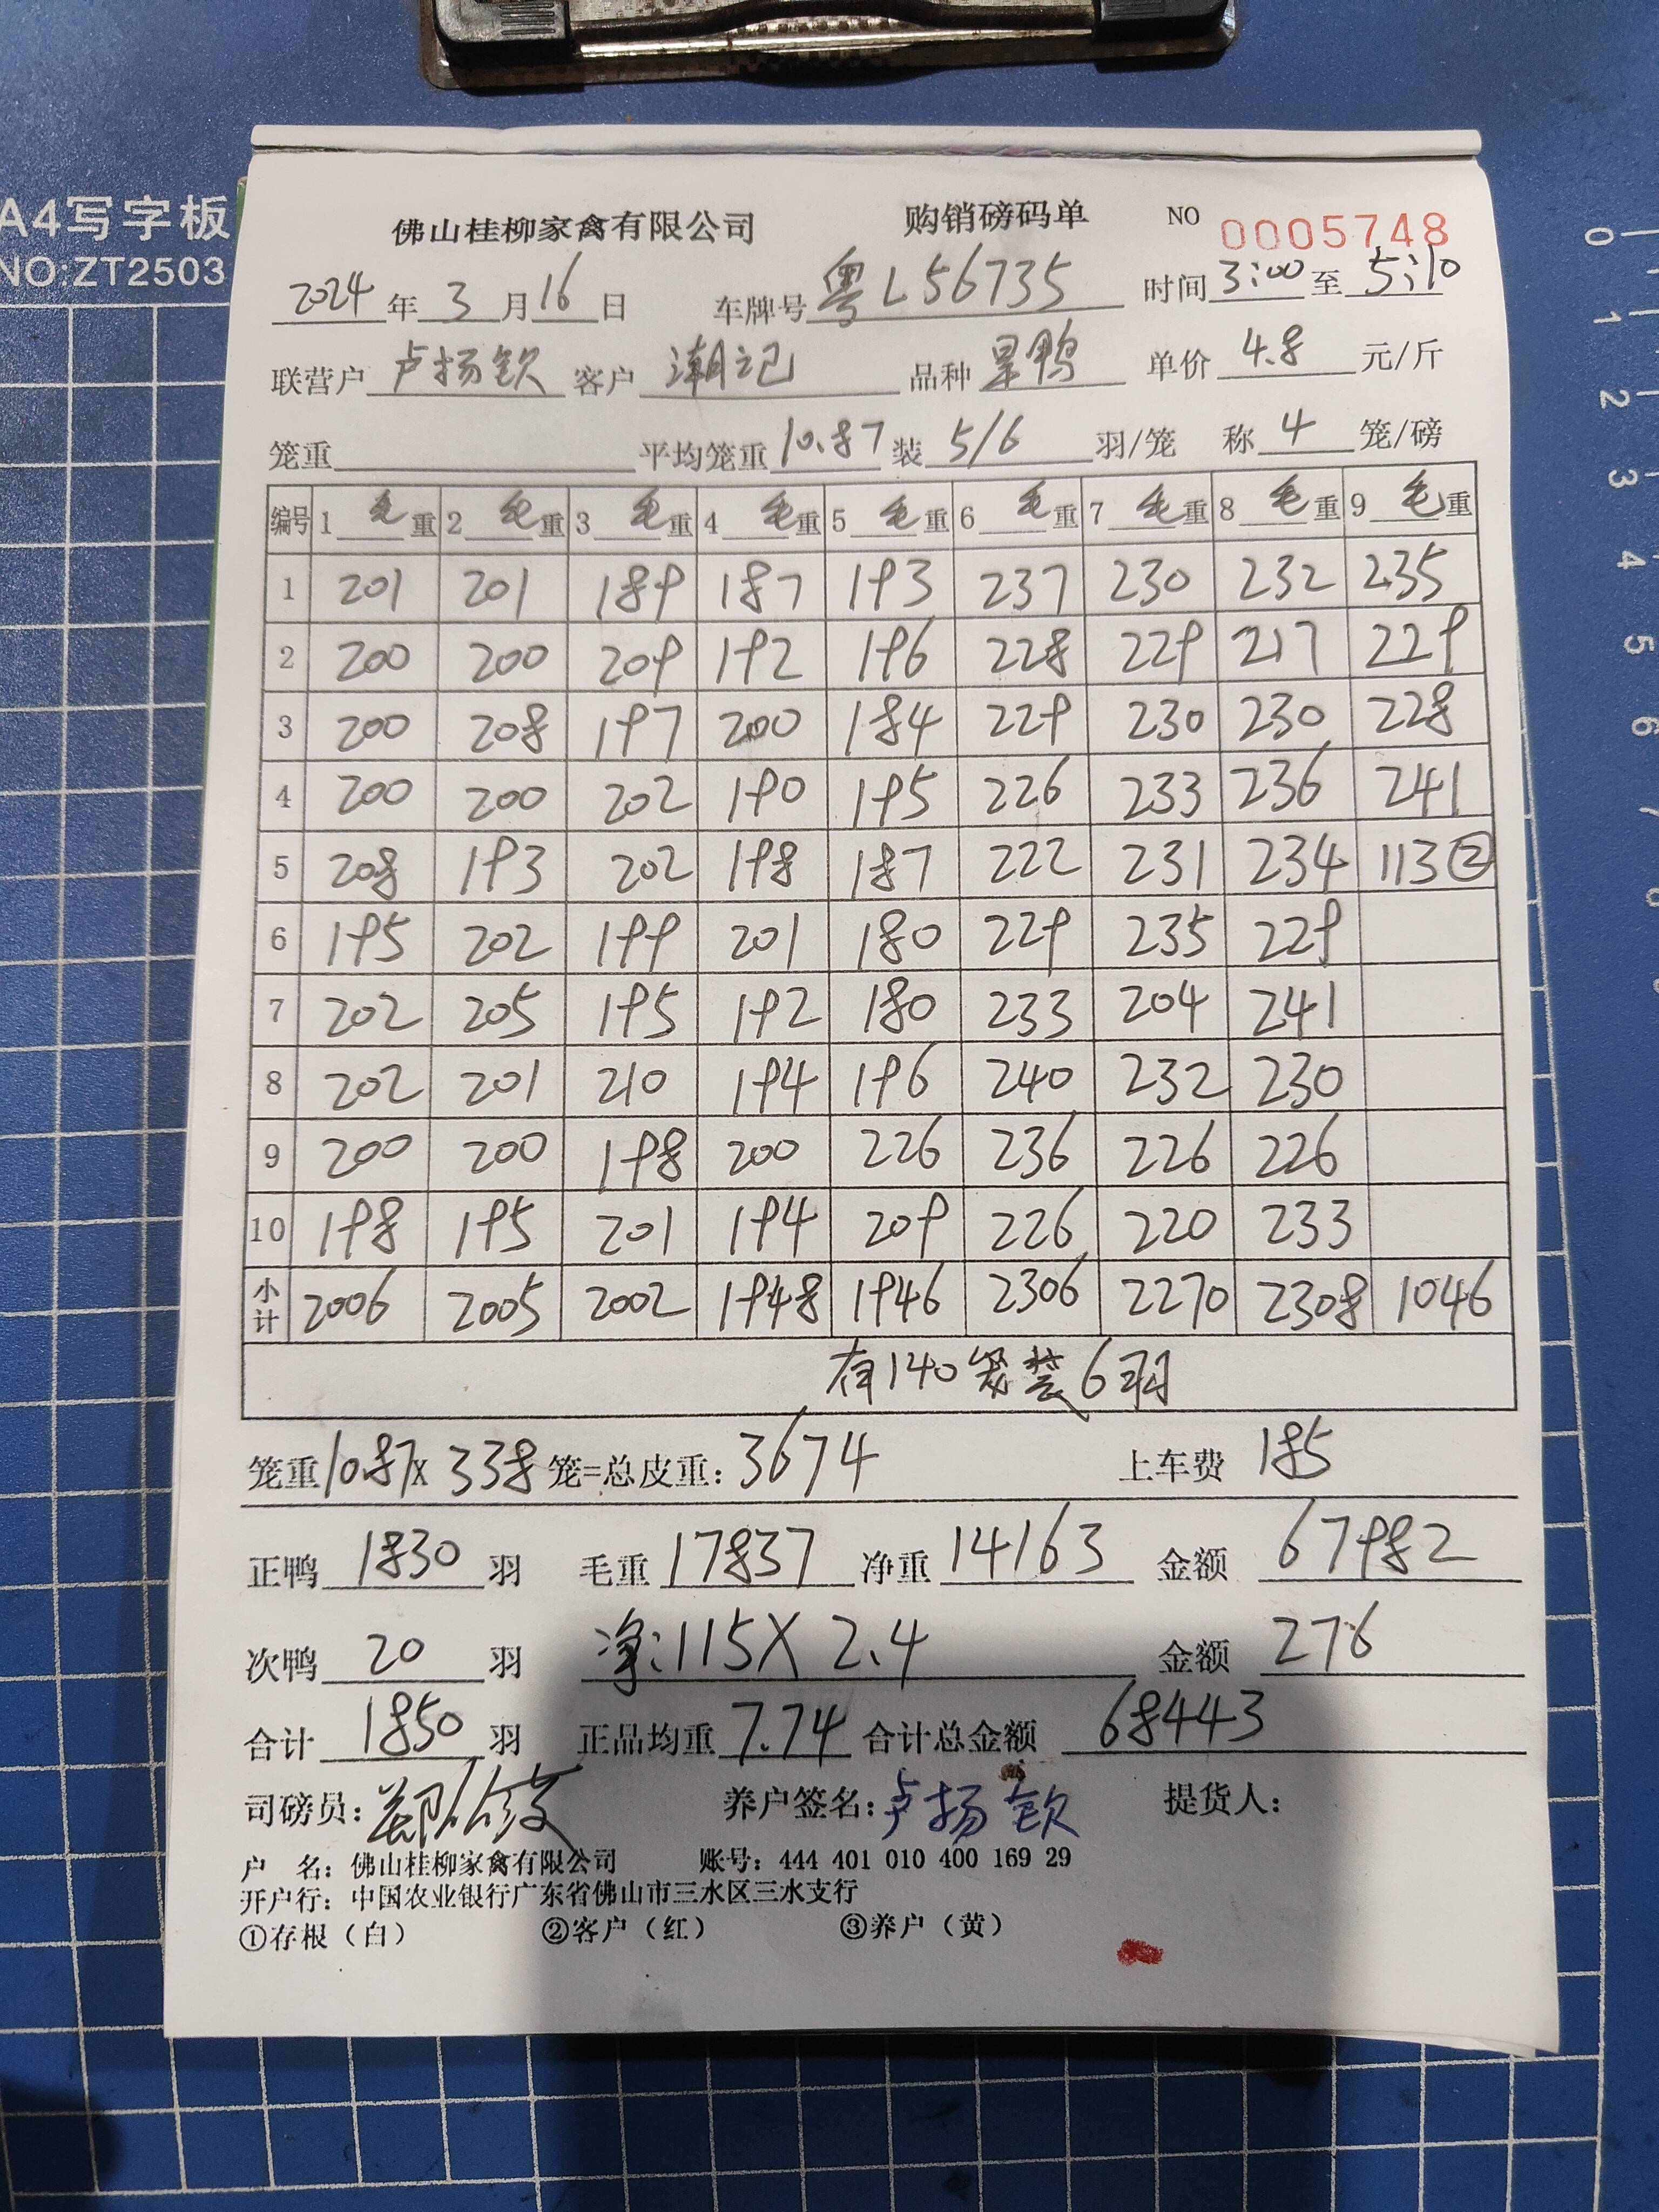 A4写字板
NO:ZT2503
佛山桂柳家禽有限公司 购销磅码单 NO 0005748
2024年3月16日 车牌号 粤L56735 时间 3:00 至 5:10
联营户 卢扬钦 客户 潮记 品种 旱鸭 单价 4.8 元/斤
笼重 平均笼重 10.87 装 5/6 羽/笼 称 4 笼/磅
编号 1 毛重 2 毛重 3 毛重 4 毛重 5 毛重 6 毛重 7 毛重 8 毛重 9 毛重
1 201 201 189 187 193 237 230 232 235
2 200 200 209 192 196 228 229 217 229
3 200 208 197 200 184 229 230 230 228
4 200 200 202 190 195 226 233 236 241
5 208 193 202 198 187 222 231 234 113②
6 195 202 199 201 180 229 235 229
7 202 205 195 192 180 233 204 241
8 202 201 210 194 196 240 232 230
9 200 200 198 200 226 236 226 226
10 198 195 201 194 209 226 220 233
小计 2006 2005 2002 1948 1946 2306 2270 2308 1046
有140笼装6羽
笼重10.87x 338 笼=总皮重: 3674 上车费 185
正鸭 1830 羽 毛重 17837 净重 14163 金额 67982
次鸭 20 羽 净:115X 2.4 金额 276
合计 1850 羽 正品均重 7.74 合计总金额 68443
司磅员: 养户签名: 卢扬钦 提货人:
户 名: 佛山桂柳家禽有限公司 账号: 444 401 010 400 169 29
开户行: 中国农业银行广东省佛山市三水区三水支行
①存根（白） ②客户（红） ③养户（黄）
0
1
2
3
4
5
6
7
8